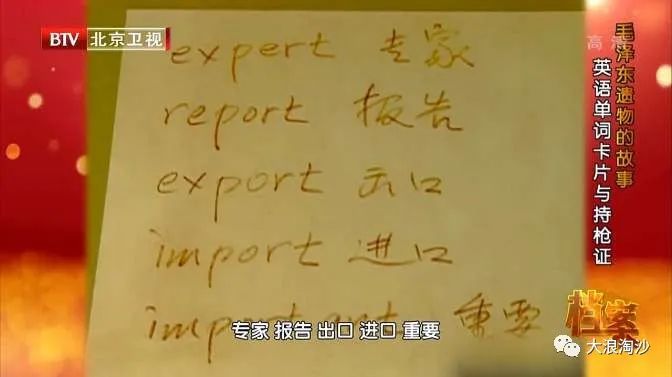 BTV 北京卫视
高清
毛泽东遗物的故事
英语单词卡片与持枪证
expert 专家
report 报告
export 出口
import 进口
important 重要
专家 报告 出口 进口 重要
档案
大浪淘沙